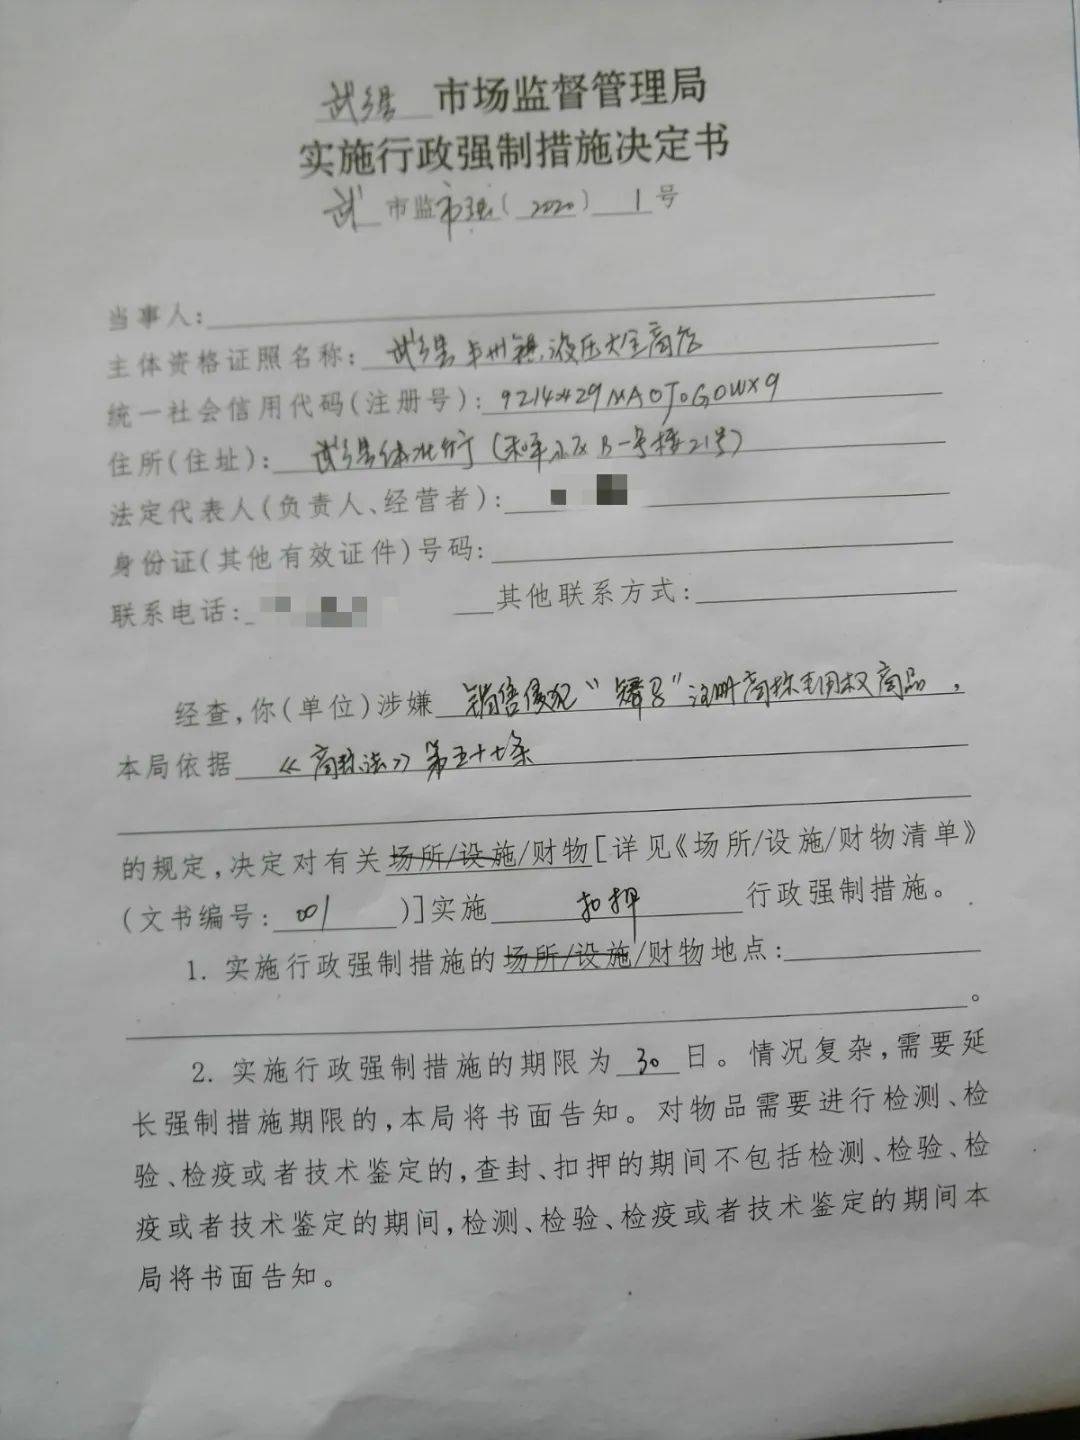 武乡县 市场监督管理局
实施行政强制措施决定书
武 市监市强(2020) 1 号
当事人:
主体资格证照名称: 武乡县丰州镇液压大全商店
统一社会信用代码(注册号):
住所(住址): 武乡县体北街(和平小区B一号楼21号)
法定代表人(负责人、经营者):
身份证(其他有效证件)号码:
联系电话: 其他联系方式:
经查,你(单位)涉嫌 销售侵犯“ ”注册商标专用权商品,
本局依据 《商标法》第五十七条
的规定,决定对有关场所/设施/财物[详见《场所/设施/财物清单》
(文书编号: 001 )]实施 扣押 行政强制措施。
1. 实施行政强制措施的场所/设施/财物地点:
。
2. 实施行政强制措施的期限为 30 日。情况复杂,需要延
长强制措施期限的,本局将书面告知。对物品需要进行检测、检
验、检疫或者技术鉴定的,查封、扣押的期间不包括检测、检验、检
疫或者技术鉴定的期间,检测、检验、检疫或者技术鉴定的期间本
局将书面告知。